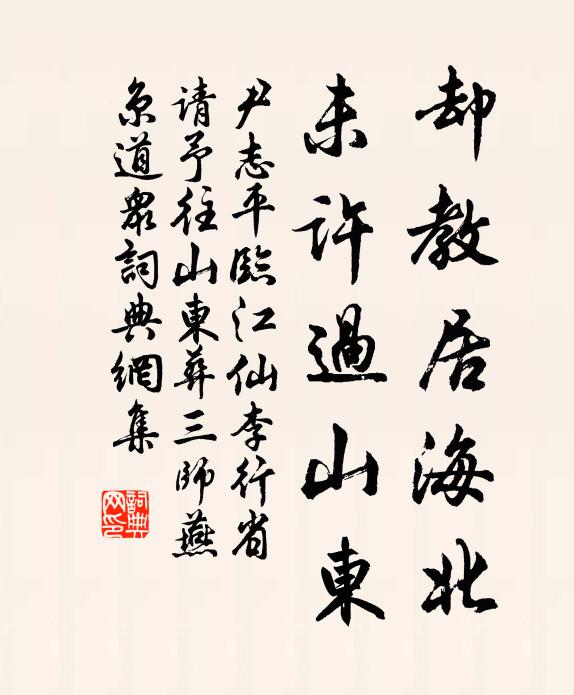 却教居海北
未许過山東
尹志平臨江仙李行省
请予往山東葬三师燕
京道衆詞典網集
詞典
网印